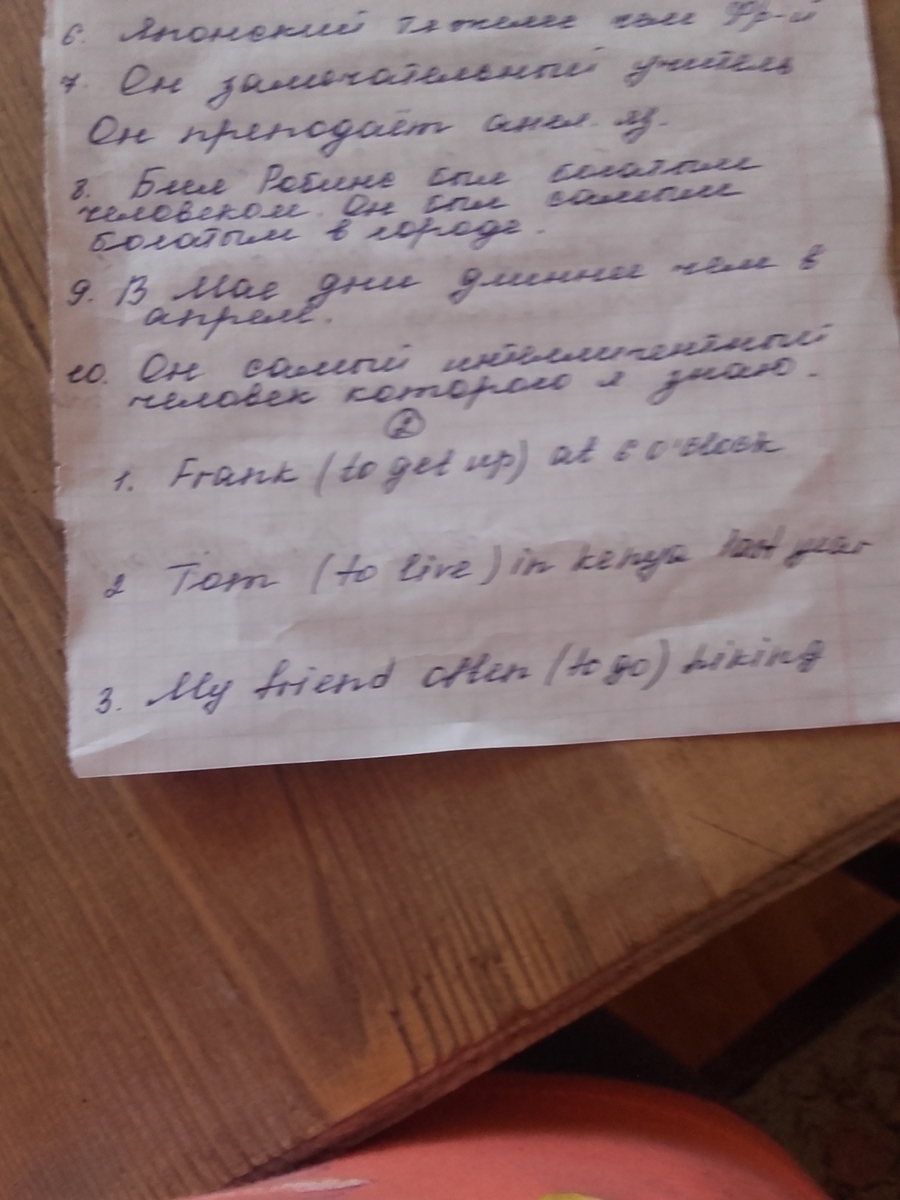 6. Японский тяжелее чем Фр-й
7. Он замечательный учитель
Он преподаёт англ. яз.
8. Бил Робинс был богатым
человеком. Он был самым
богатым в городе.
9. В Мае дни длиннее чем в
апреле.
10. Он самый интеллигентный
человек которого я знаю.
2
1. Frank (to get up) at 6 o'clock
2 Tom (to live) in kenya last year
3. My friend often (to go) hiking